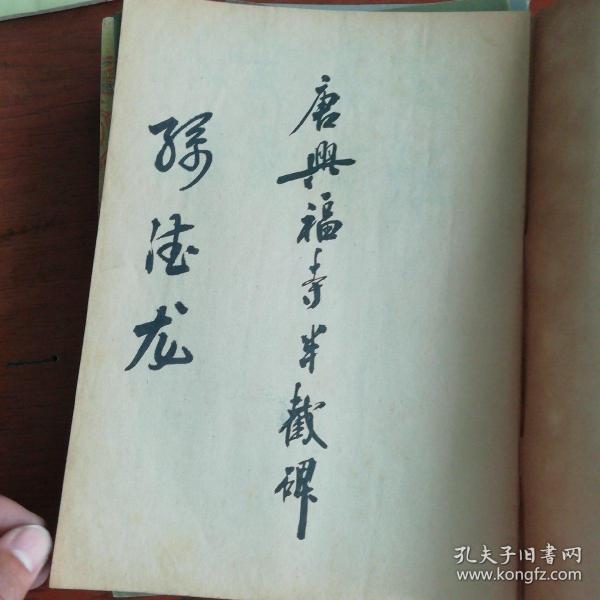 唐興福寺半截碑
孫德龙
孔夫子旧書网
www.kongfz.com